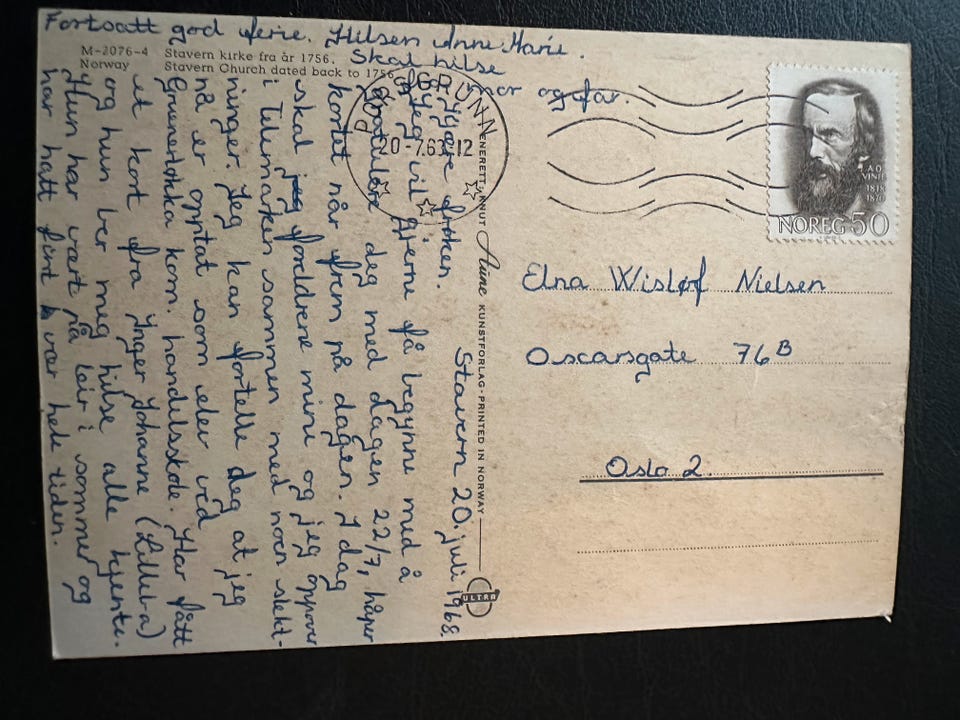 Fortsatt god ferie. Hilsen Anne Marie.
Skal hilse
mor og far.
M-2076-4 Stavern kirke fra år 1756.
Norway Stavern Church dated back to 1756
Stavern 20. juli 1968.
frøken.
Jeg vil gjerne få begynne med å
gratulere deg med dagen 22/7, håper
kortet når frem på dagen. I dag
skal jeg foreldrene mine og jeg oppover
i Telemarken sammen med noen slekt-
ninger. Jeg kan fortelle deg at jeg
nå er opptat som elev ved
Grunerløkka kom. handelsskole. Har fått
et kort fra Inger Johanne (Lilleba)
og hun ber meg hilse alle kjente.
Hun har vært på leir i sommer og
har hatt fint vær hele tiden.
ENERETT: KNUT Aune KUNSTFORLAG · PRINTED IN NORWAY
ULTRA
GRUNN
20 -7.68 12
A O
VINJE
1818
1870
NOREG 50
Elna Wisløf Nielsen
Oscarsgate 76B
Oslo 2.